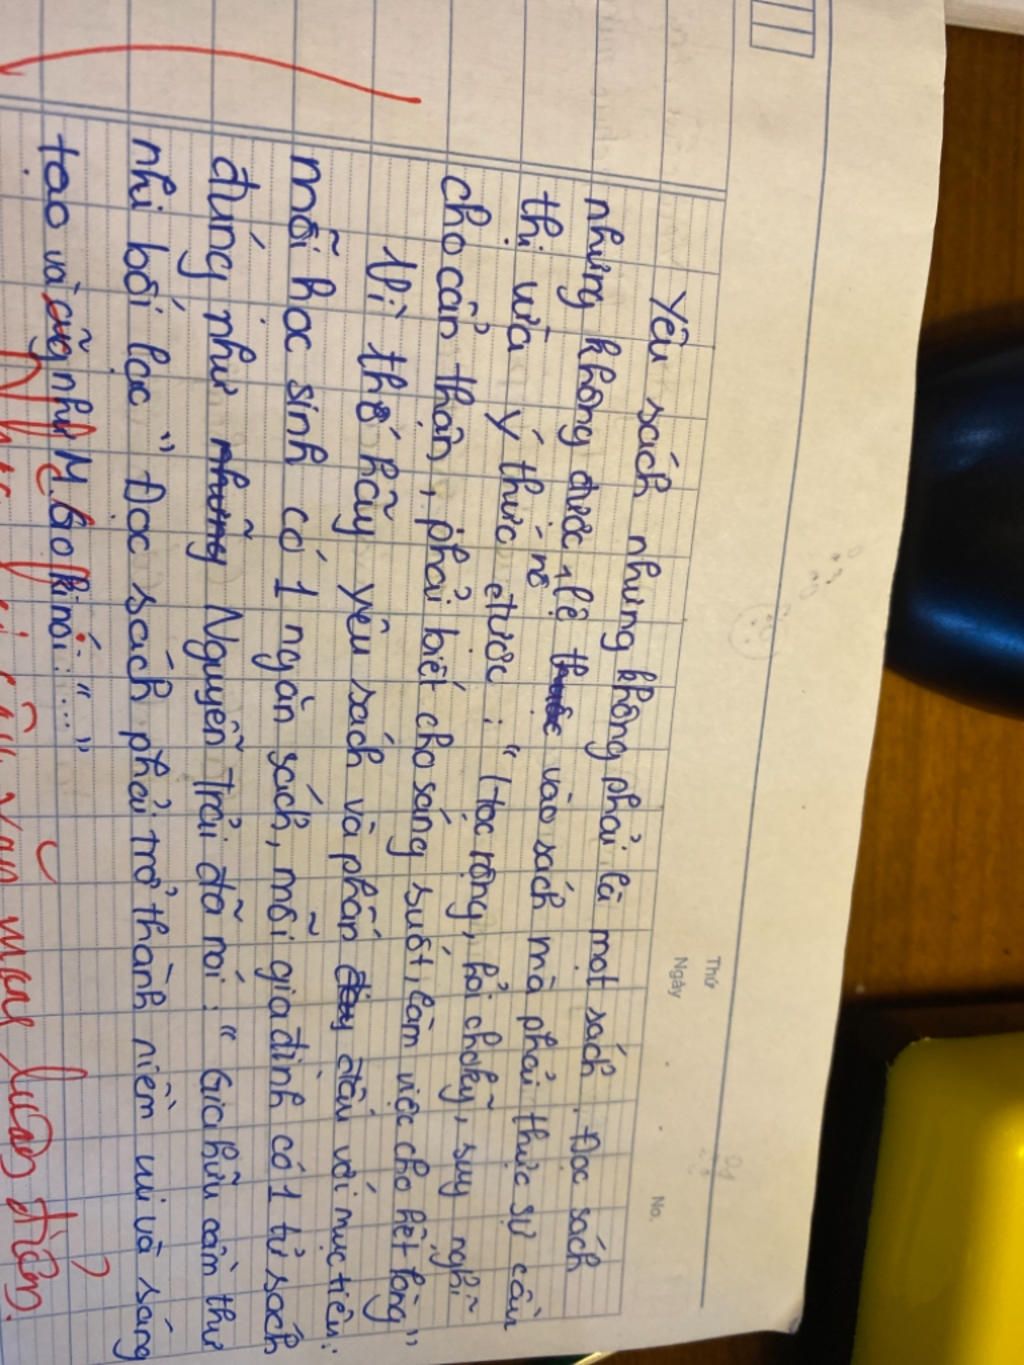 Thứ
Ngày
No.
Yêu sách nhưng không phải là mọt sách. Đọc sách
nhưng không được lệ vào sách mà phải thực sự cần
thị vừa ý thức được: " Học rộng, hỏi cho kỹ, suy nghĩ
cho cẩn thận, phải biết cho sáng suốt, làm việc cho hết lòng"
Vì thế hãy yêu sách và phấn đấu với mục tiêu:
mỗi học sinh có 1 ngàn sách, mỗi gia đình có 1 tủ sách
đúng như Nguyễn Trãi đã nói: " Gia hữu cầm thư
nhi bối lạc" Đọc sách phải trở thành niềm vui và sáng
tạo và cũng như M. Gorki nói: "..."
câu văn mang luận điểm.